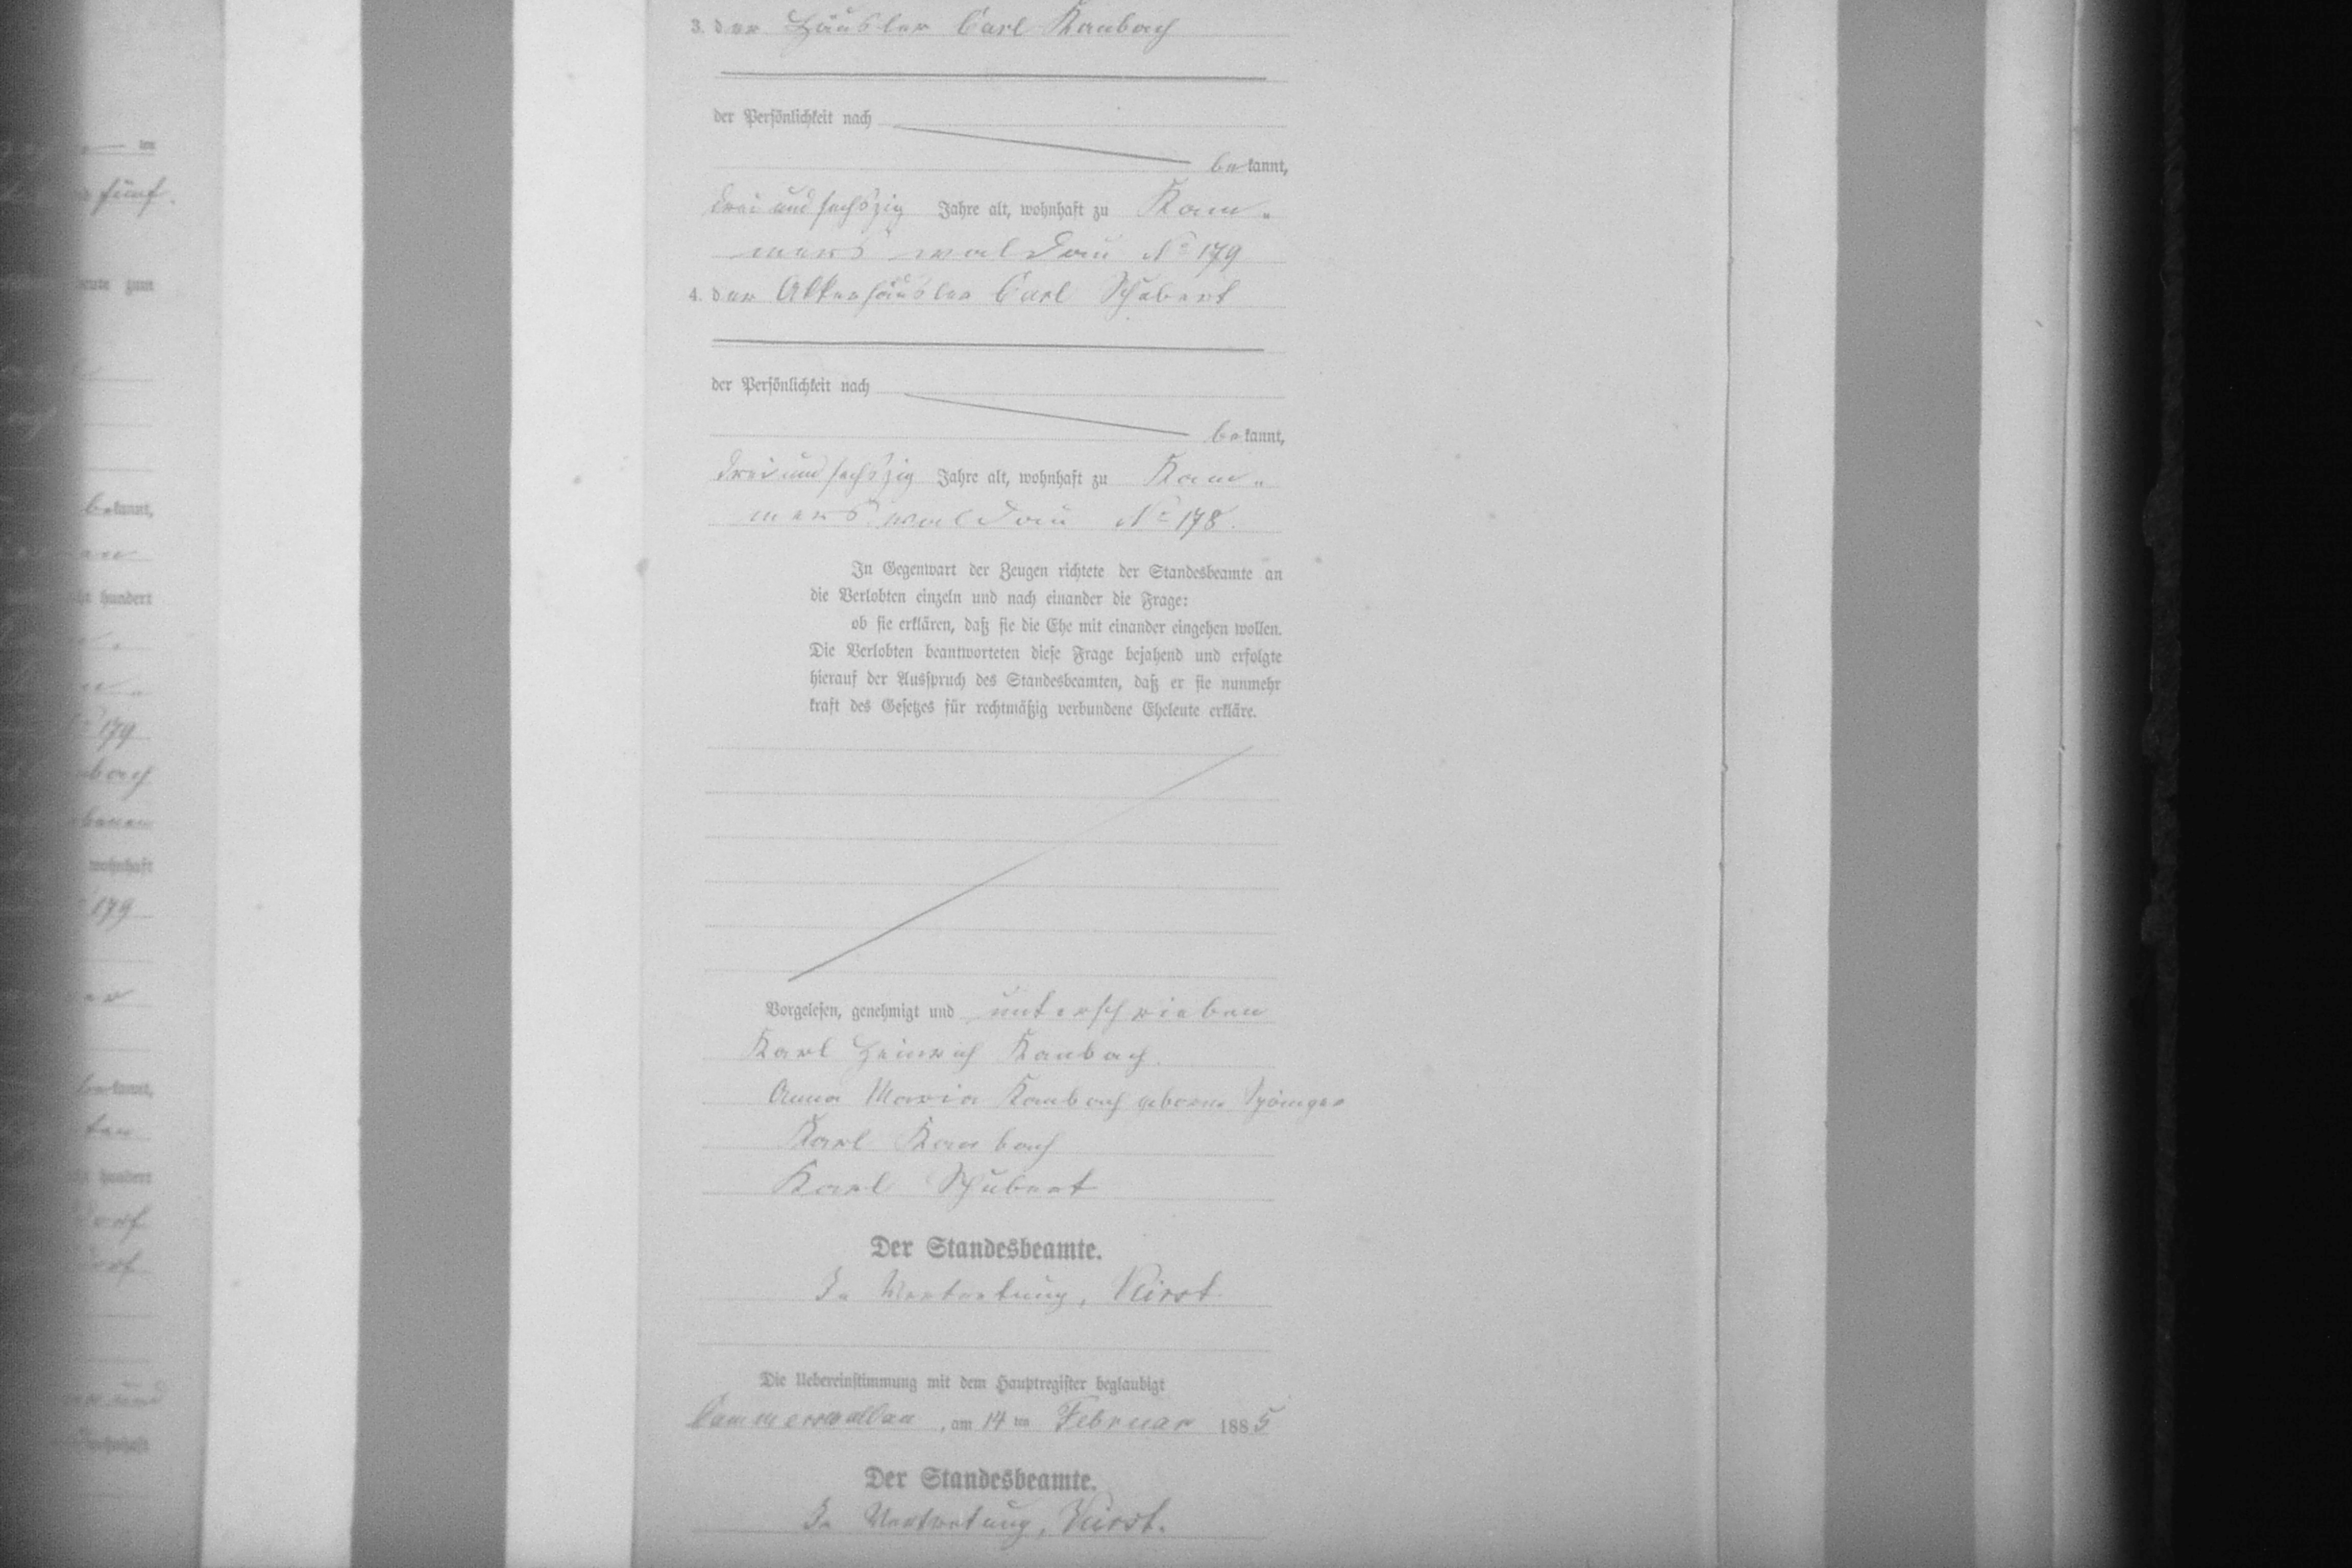 3. der Häusler Carl Kaubach
der Persönlichkeit nach
bekannt,
drei und sechszig Jahre alt, wohnhaft zu Kam-
merswaldau No 179
4. der Ackerhäusler Carl Schubert
der Persönlichkeit nach
bekannt,
drei und sechszig Jahre alt, wohnhaft zu Kam-
merswaldau No 178.
In Gegenwart der Zeugen richtete der Standesbeamte an
die Verlobten einzeln und nach einander die Frage:
ob sie erklären, daß sie die Ehe mit einander eingehen wollen.
Die Verlobten beantworteten diese Frage bejahend und erfolgte
hierauf der Ausspruch des Standesbeamten, daß er sie nunmehr
kraft des Gesetzes für rechtmäßig verbundene Eheleute erkläre.
Vorgelesen, genehmigt und unterschrieben
Karl Heinrich Kaubach.
Anna Maria Kaubach geborne
Karl Kaubach
Karl Schubert
Der Standesbeamte.
In Vertretung,
Die Uebereinstimmung mit dem Hauptregister beglaubigt
Cammerswaldau, am 14 ten Februar 1885
Der Standesbeamte.
In Vertretung,
ten
fünf.
zum
bekannt,
hundert
179
wohnhaft
179
hundert